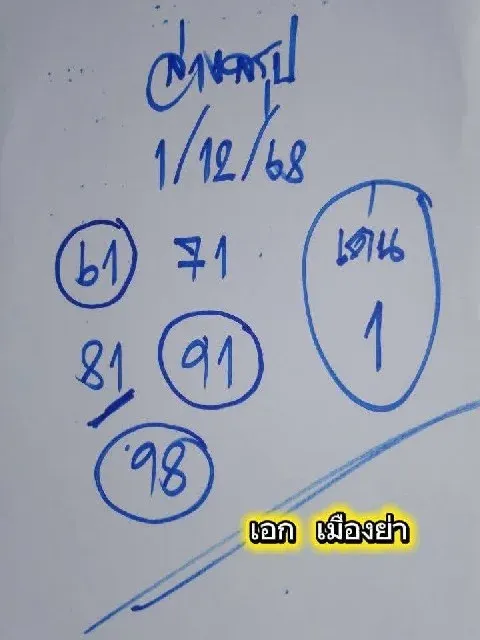 ล่างสรุป
1/12/68
61 71
เด่น
1
81 91
98
เอก เมืองย่า